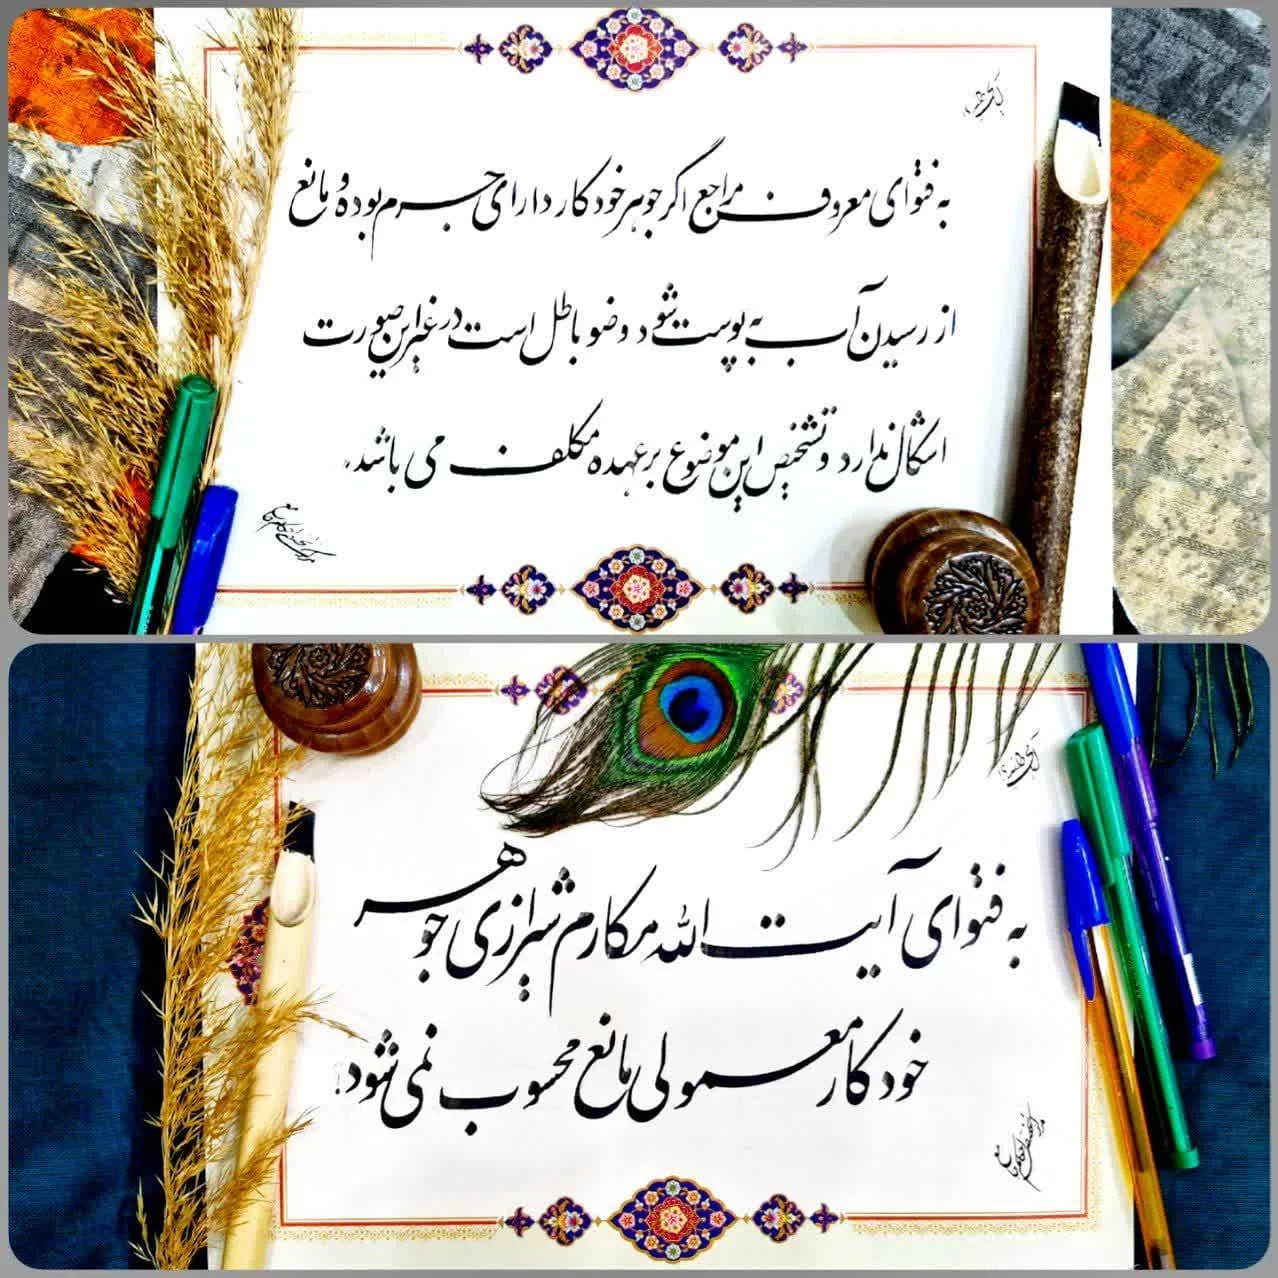 به فتوای معروف مراجع اگر جوهر خودکار دارای جرم بوده و مانع
از رسیدن آب به پوست شود وضو باطل است در غیر این صورت
اشکال ندارد و تشخیص این موضوع بر عهده مکلف می باشد.
به فتوای آیت الله مکارم شیرازی جوهر
خودکار معمولی مانع محسوب نمی شود.